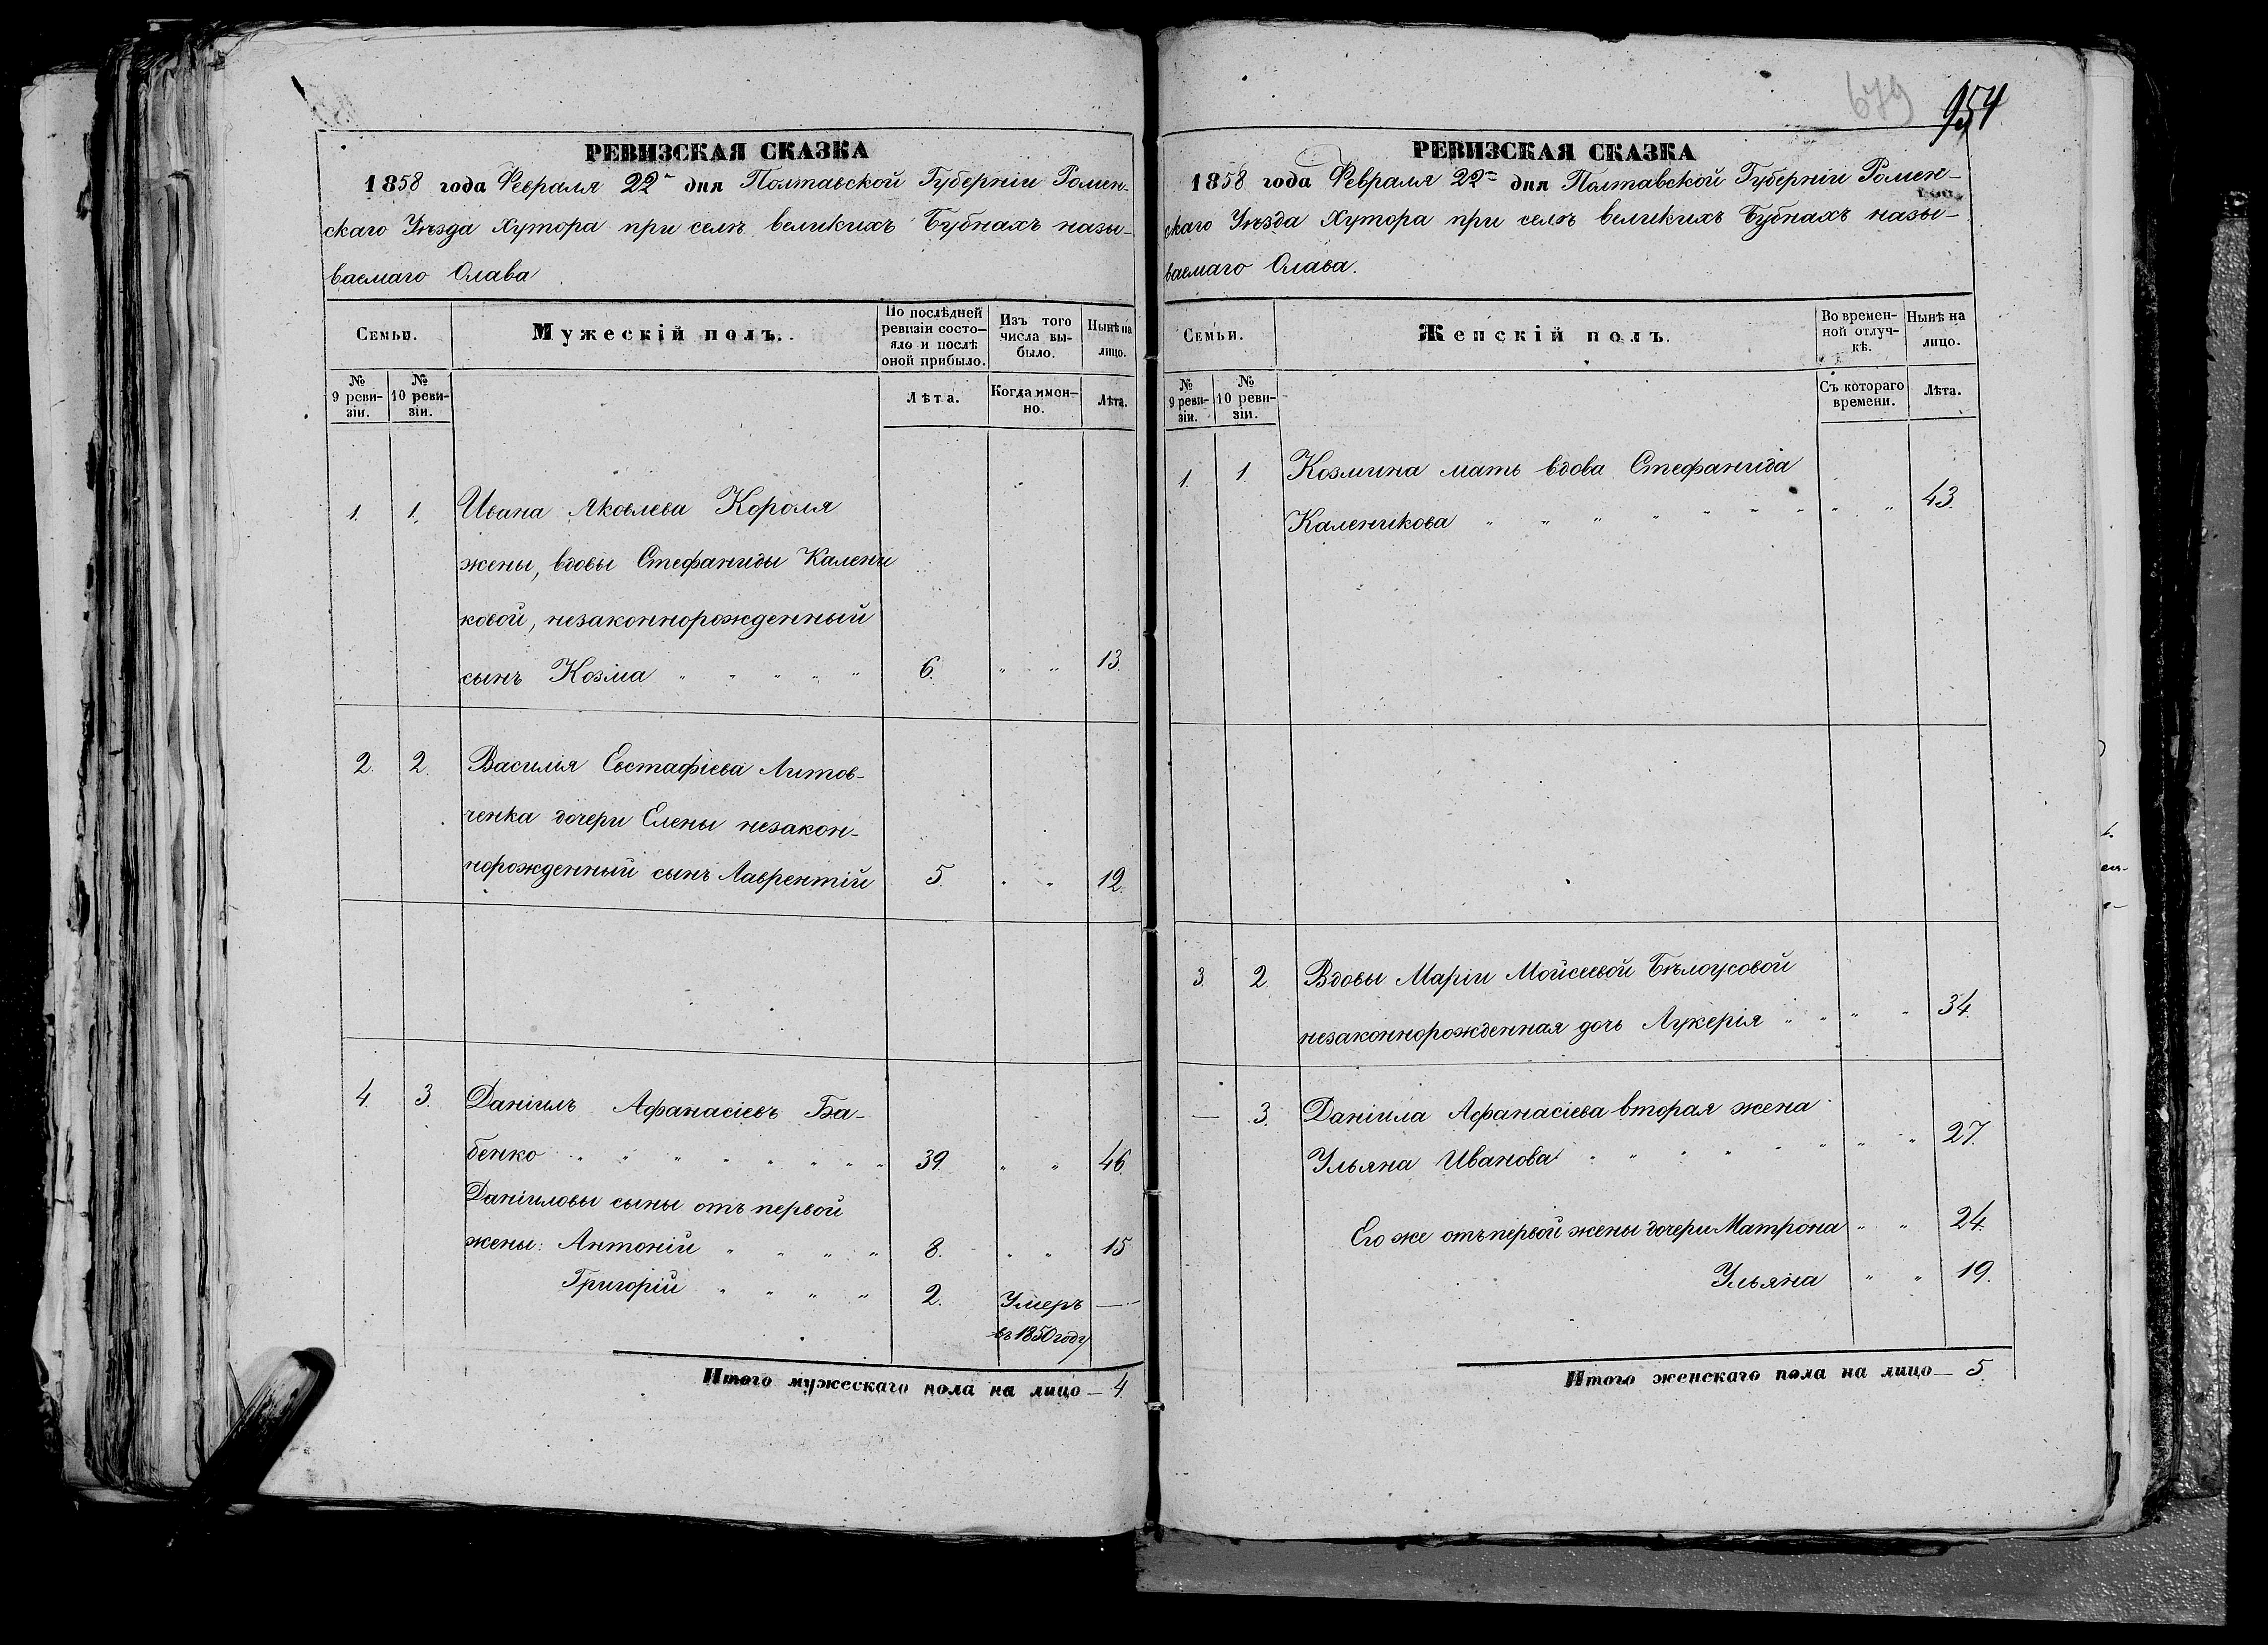 РЕВИЗСКАЯ СКАЗКА
1858 года Февраля 22го дня Полтавской Губерніи Ромен-
скаго Уѣзда Хутора при селѣ великихъ Бубнахъ назы-
ваемаго Олава
Семьи.
Мужескій полъ.
По послѣдней
ревизіи состо-
яло и послѣ
оной прибыло.
Изъ того
числа вы-
было.
Нынѣ на
лицо.
№
9 реви-
зіи.
№
10 реви-
зіи.
Лѣта.
Когда имен-
но.
Лѣта.
1. 1. Ивана Яковлева Короля
жены, вдовы Стефаниды Калени
ковой, незаконнорожденный
сынъ Козма " " " " " 6. " " 13.
2. 2. Василія Евстафіева Литов-
ченка дочери Елены незакон-
норожденный сынъ Лаврентій 5. " " 12.
4. 3. Даніилъ Афанасіевъ Ба-
бенко " " " " " " " 39. " " 46.
Даніиловы сыны отъ первой
жены: Антоній " " " " 8. " " 15
Григорій " " " " 2. Умеръ —
въ 1850 году
Итого мужескаго пола на лицо — 4.
679
954
РЕВИЗСКАЯ СКАЗКА
1858 года Февраля 22го дня Полтавской Губерніи Ромен-
скаго Уѣзда Хутора при селѣ великихъ Бубнахъ назы-
ваемаго Олава.
Семьи.
Женскій полъ.
Во времен-
ной отлуч-
кѣ.
Нынѣ на
лицо.
№
9 реви-
зіи.
№
10 реви-
зіи.
Съ котораго
времени.
Лѣта.
1. 1. Козмина мать вдова Стефанида
Каленикова " " " " " " " " " 43.
3. 2. Вдовы Маріи Мойсеевой Бѣлоусовой
незаконнорожденная дочь Лукерія " " " " 34.
— 3. Даніила Афанасіева вторая жена
Ульяна Иванова " " " " " " " " 27.
Его же отъ первой жены дочери Матрона " " 24.
Ульяна " " 19.
Итого женскаго пола на лицо — 5.